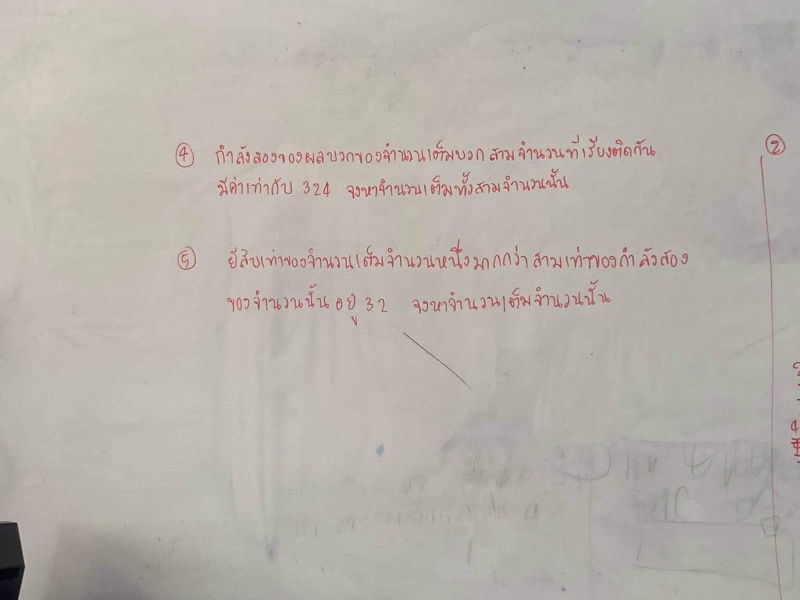 ④ กำลังสองของผลบวกของจำนวนเต็มบวก สามจำนวนที่เรียงติดกัน
มีค่าเท่ากับ 324 จงหาจำนวนเต็มทั้งสามจำนวนนั้น
⑤ ยี่สิบเท่าของจำนวนเต็มจำนวนหนึ่งมากกว่า สามเท่าของกำลังสอง
ของจำนวนนั้น อยู่ 32 จงหาจำนวนเต็มจำนวนนั้น
②